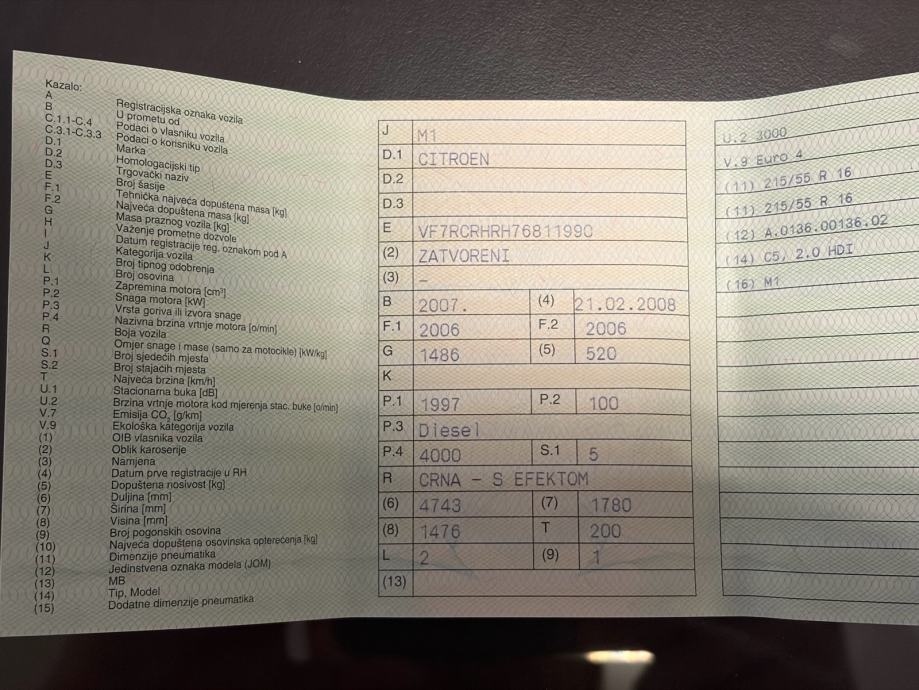 Kazalo:
A Registracijska oznaka vozila
B U prometu od
C.1.1-C.4 Podaci o vlasniku vozila
C.3.1-C.3.3 Podaci o korisniku vozila
D.1 Marka
D.2 Homologacijski tip
D.3 Trgovački naziv
E Broj šasije
F.1 Tehnička najveća dopuštena masa [kg]
F.2 Najveća dopuštena masa [kg]
G Masa praznog vozila [kg]
H Važenje prometne dozvole
I Datum registracije reg. oznakom pod A
J Kategorija vozila
K Broj tipnog odobrenja
L Broj osovina
P.1 Zapremina motora [cm³]
P.2 Snaga motora [kW]
P.3 Vrsta goriva ili izvora snage
P.4 Nazivna brzina vrtnje motora [o/min]
R Boja vozila
Q Omjer snage i mase (samo za motocikle) [kW/kg]
S.1 Broj sjedećih mjesta
S.2 Broj stajaćih mjesta
T Najveća brzina [km/h]
U.1 Stacionarna buka [dB]
U.2 Brzina vrtnje motora kod mjerenja stac. buke [o/min]
V.7 Emisija CO₂ [g/km]
V.9 Ekološka kategorija vozila
(1) OIB vlasnika vozila
(2) Oblik karoserije
(3) Namjena
(4) Datum prve registracije u RH
(5) Dopuštena nosivost [kg]
(6) Duljina [mm]
(7) Širina [mm]
(8) Visina [mm]
(9) Broj pogonskih osovina
(10) Najveća dopuštena osovinska opterećenja [kg]
(11) Dimenzije pneumatika
(12) Jedinstvena oznaka modela (JOM)
(13) MB
(14) Tip, Model
(15) Dodatne dimenzije pneumatika
J M1
D.1 CITROEN
D.2
D.3
E VF7RCRHRH76811990
(2) ZATVORENI
(3) –
B 2007. (4) 21.02.2008
F.1 2006 F.2 2006
G 1486 (5) 520
K
P.1 1997 P.2 100
P.3 Diesel
P.4 4000 S.1 5
R CRNA – S EFEKTOM
(6) 4743 (7) 1780
(8) 1476 T 200
L 2 (9) 1
(13)
U.2 3000
V.9 Euro 4
(11) 215/55 R 16
(11) 215/55 R 16
(12) A.0136.00136.02
(14) C5, 2.0 HDI
(16) M1